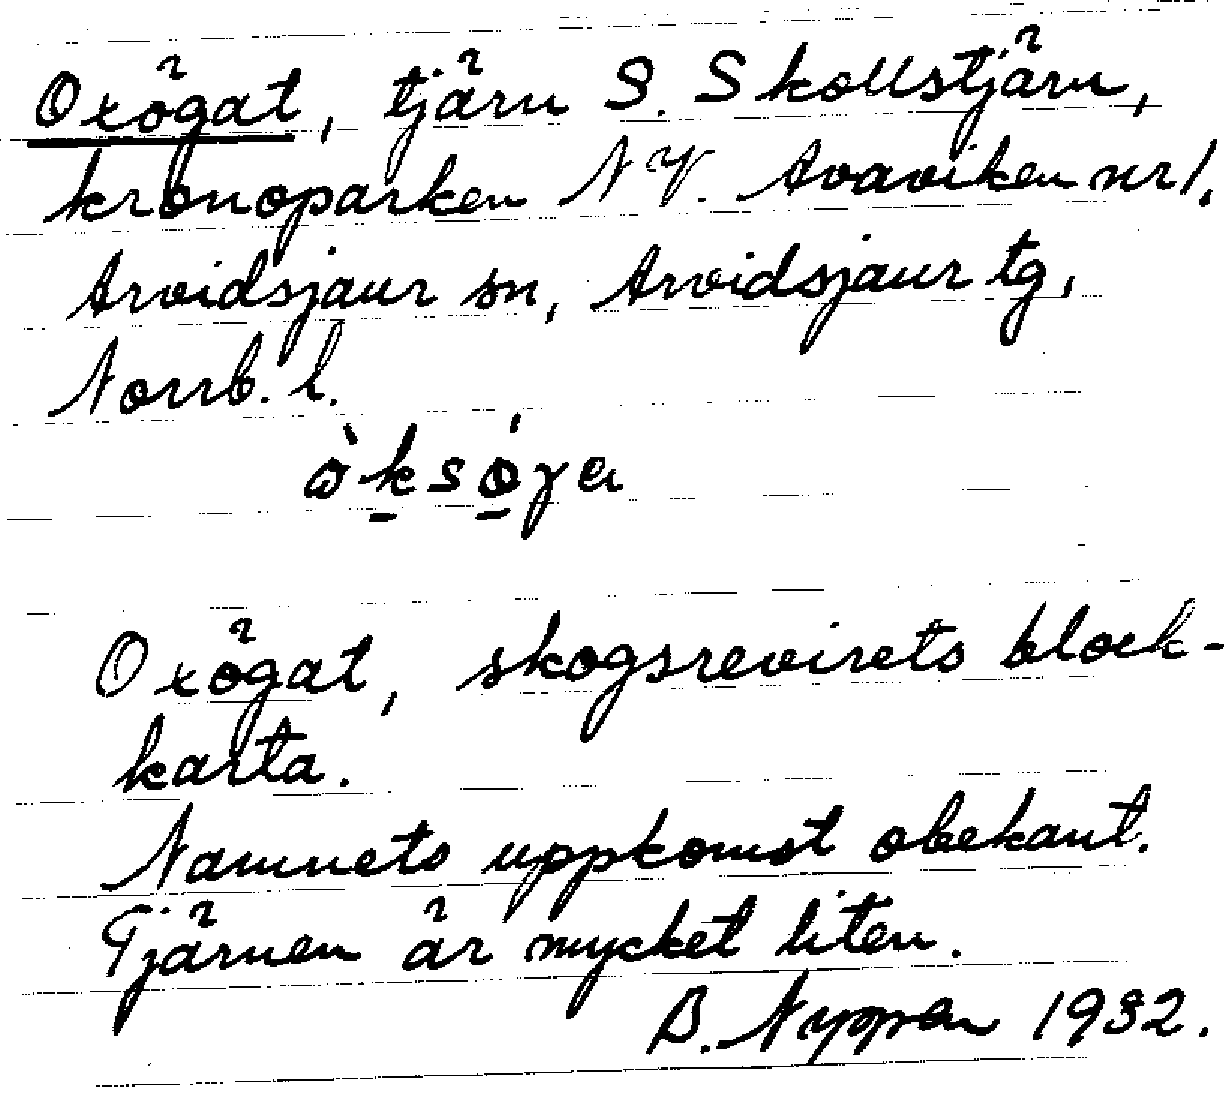 Oxögat, tjärn S. Skollstjärn,
kronoparken NV. Avaviken nr 1,
Arvidsjaur sn, Arvidsjaur tg,
Norrb. l.
Oxögat, skogsrevirets block-
karta.
Namnets uppkomst obekant.
Tjärnen är mycket liten.
B. 1932.